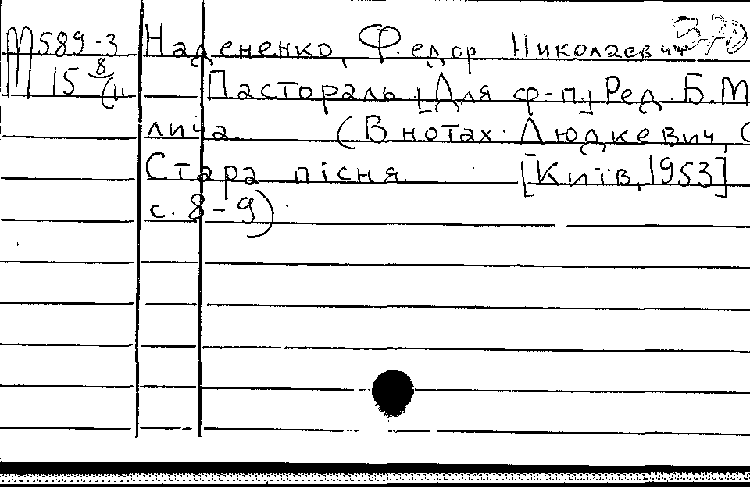 М589-3 Надененко, Федор Николаевич 370
15 8/11 Пастораль [Для ф-п.] Ред. Б. М
лича (В нотах: Людкевич, С
Стара пісня [Київ, 1953]
с. 8-9)